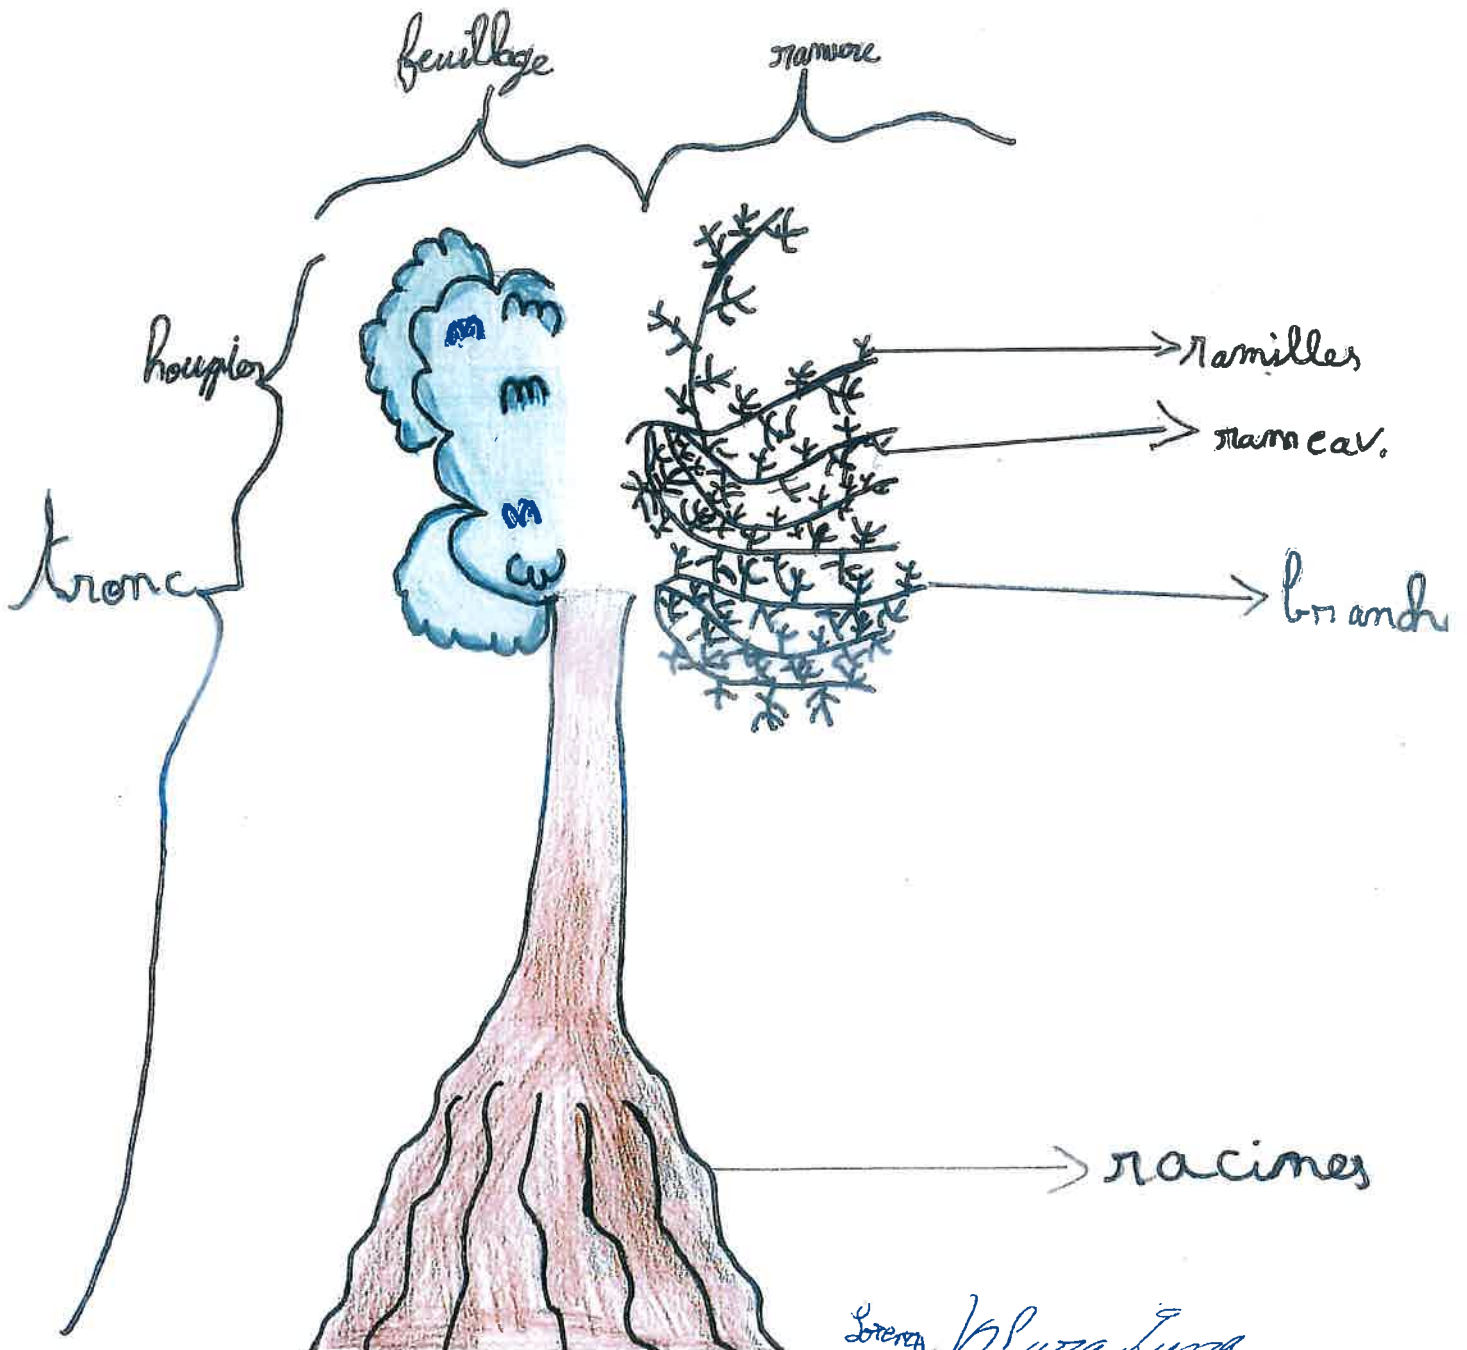 feuillage
ramure
houpier
ramilles
rameau.
tronc
branch
racines
Lorena